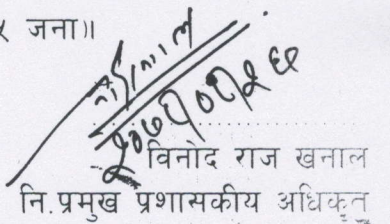 ५ जना॥
२०७५।०५।२६
विनोद राज खनाल
नि.प्रमुख प्रशासकीय अधिकृत